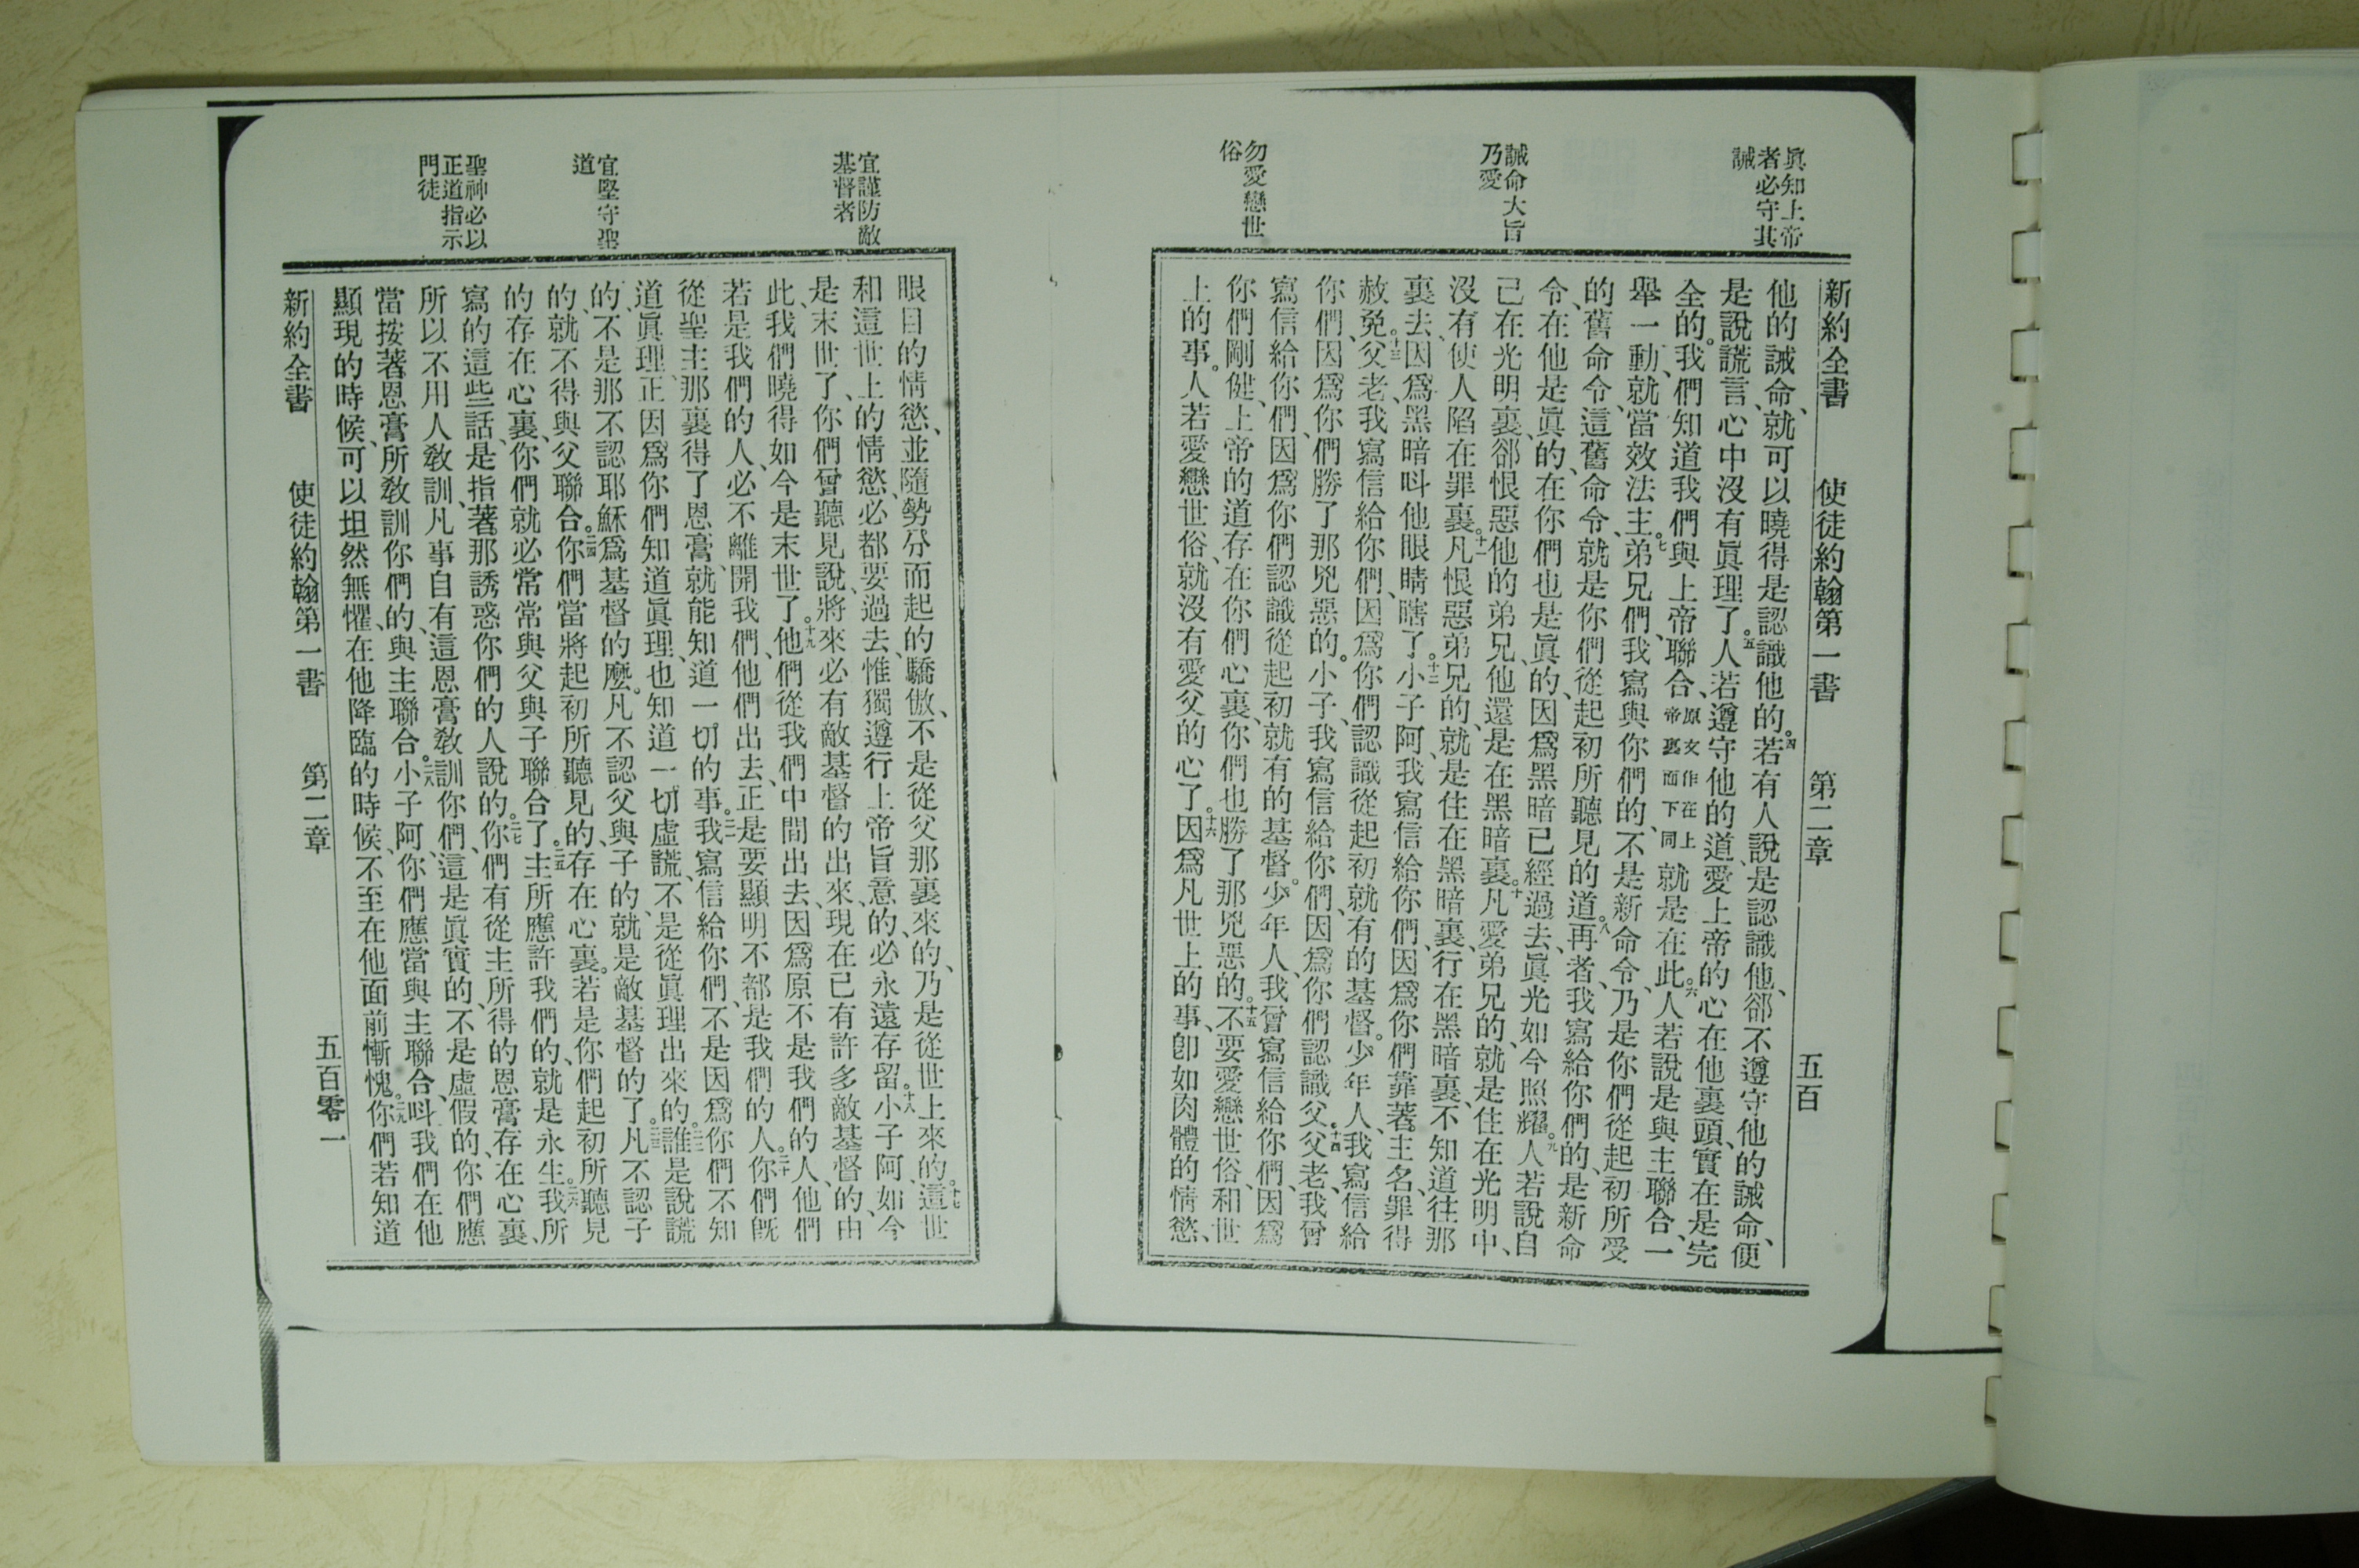 眞知上帝
者必守其
誡
誡命大旨
乃愛
勿愛戀世
俗
新約全書 使徒約翰第一書 第二章 五百
他的誡命、就可以曉得是認識他的。四若有人說、是認識他、郤不遵守他的誡命、便
是說謊言、心中沒有眞理了。五人若遵守他的道、愛上帝的心在他裏頭、實在是完
全的。我們知道我們與上帝聯合、原文作在上帝裏面下同就是在此。六人若說是與主聯合、一
舉一動、就當效法主。七弟兄們、我寫與你們的、不是新命令、乃是你們從起初所受
的舊命令、這舊命令、就是你們從起初所聽見的道。八再者、我寫給你們的、是新命
令、在他是眞的、在你們也是眞的、因爲黑暗已經過去、眞光如今照耀。九人若說自
己在光明裏、郤恨惡他的弟兄、他還是在黑暗裏。十凡愛弟兄的、就是住在光明中、
沒有使人陷在罪裏。十一凡恨惡弟兄的、就是住在黑暗裏、行在黑暗裏、不知道往那
裏去、因爲黑暗呌他眼睛瞎了。十二小子阿、我寫信給你們、因爲你們靠著主名、罪得
赦免。十三父老、我寫信給你們、因爲你們認識從起初就有的基督。少年人、我寫信給
你們、因爲你們勝了那兇惡的。小子、我寫信給你們、因爲你們認識父。十四父老、我曾
寫信給你們、因爲你們認識從起初就有的基督。少年人、我曾寫信給你們、因爲
你們剛健、上帝的道存在你們心裏、你們也勝了那兇惡的。十五不要愛戀世俗、和世
上的事。人若愛戀世俗、就沒有愛父的心了。十六因爲凡世上的事、卽如肉體的情慾、
宜謹防敵
基督者
宜堅守聖
道
聖神必以
正道指示
門徒
眼目的情慾、並隨勢分而起的驕傲、不是從父那裏來的、乃是從世上來的。十七這世
和這世上的情慾、必都要過去、惟獨遵行上帝旨意的、必永遠存留。十八小子阿、如今
是末世了、你們曾聽見說、將來必有敵基督的出來、現在已有許多敵基督的、由
此、我們曉得如今是末世了。十九他們從我們中間出去、因爲原不是我們的人、他們
若是我們的人、必不離開我們、他們出去、正是要顯明不都是我們的人。二十你們旣
從聖主那裏得了恩膏、就能知道一切的事。二一我寫信給你們、不是因爲你們不知
道眞理、正因爲你們知道眞理、也知道一切虛謊、不是從眞理出來的。二二誰是說謊
的、不是那不認耶穌爲基督的麼。凡不認父與子的、就是敵基督的了。二三凡不認子
的、就不得與父聯合。二四你們當將起初所聽見的、存在心裏。若是你們起初所聽見
的存在心裏、你們就必常常與父與子聯合了。二五主所應許我們的、就是永生。二六我所
寫的這些話、是指著那誘惑你們的人說的。二七你們有從主所得的恩膏存在心裏、
所以不用人敎訓、凡事自有這恩膏敎訓你們、這是眞實的、不是虛假的、你們應
當按著恩膏所敎訓你們的、與主聯合。二八小子阿、你們應當與主聯合、呌我們在他
顯現的時候、可以坦然無懼、在他降臨的時候、不至在他面前慚愧。二九你們若知道
新約全書 使徒約翰第一書 第二章 五百零一